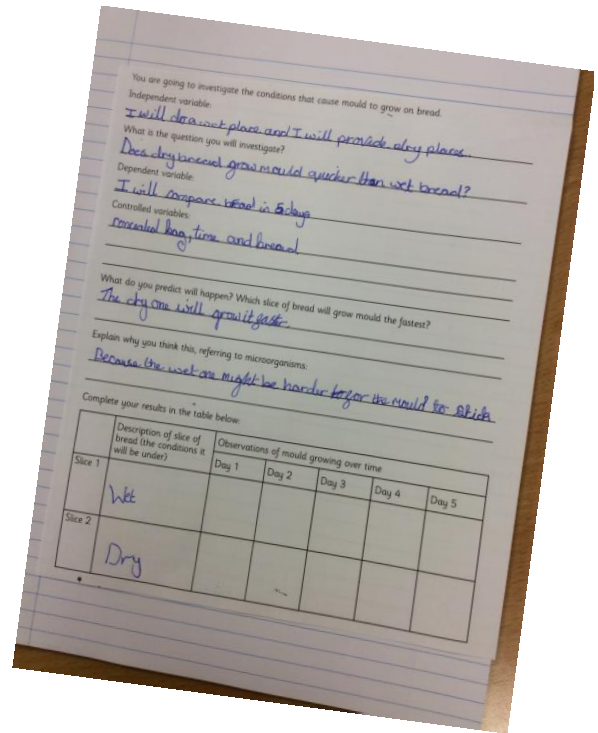 You are going to investigate the conditions that cause mould to grow on bread.
Independent variable:
I will do a wet place and I will provide dry places.
What is the question you will investigate?
Does dry bread grow mould quicker than wet bread?
Dependent variable:
I will compare bread in 5 days
Controlled variables:
concealed bag, time and bread
What do you predict will happen? Which slice of bread will grow mould the fastest?
The dry one will grow it faster.
Explain why you think this, referring to microorganisms:
Because the wet one might be harder for the mould to stick
Complete your results in the table below:
Description of slice of bread (the conditions it will be under)
Observations of mould growing over time
Day 1 Day 2 Day 3 Day 4 Day 5
Slice 1 Wet
Slice 2 Dry